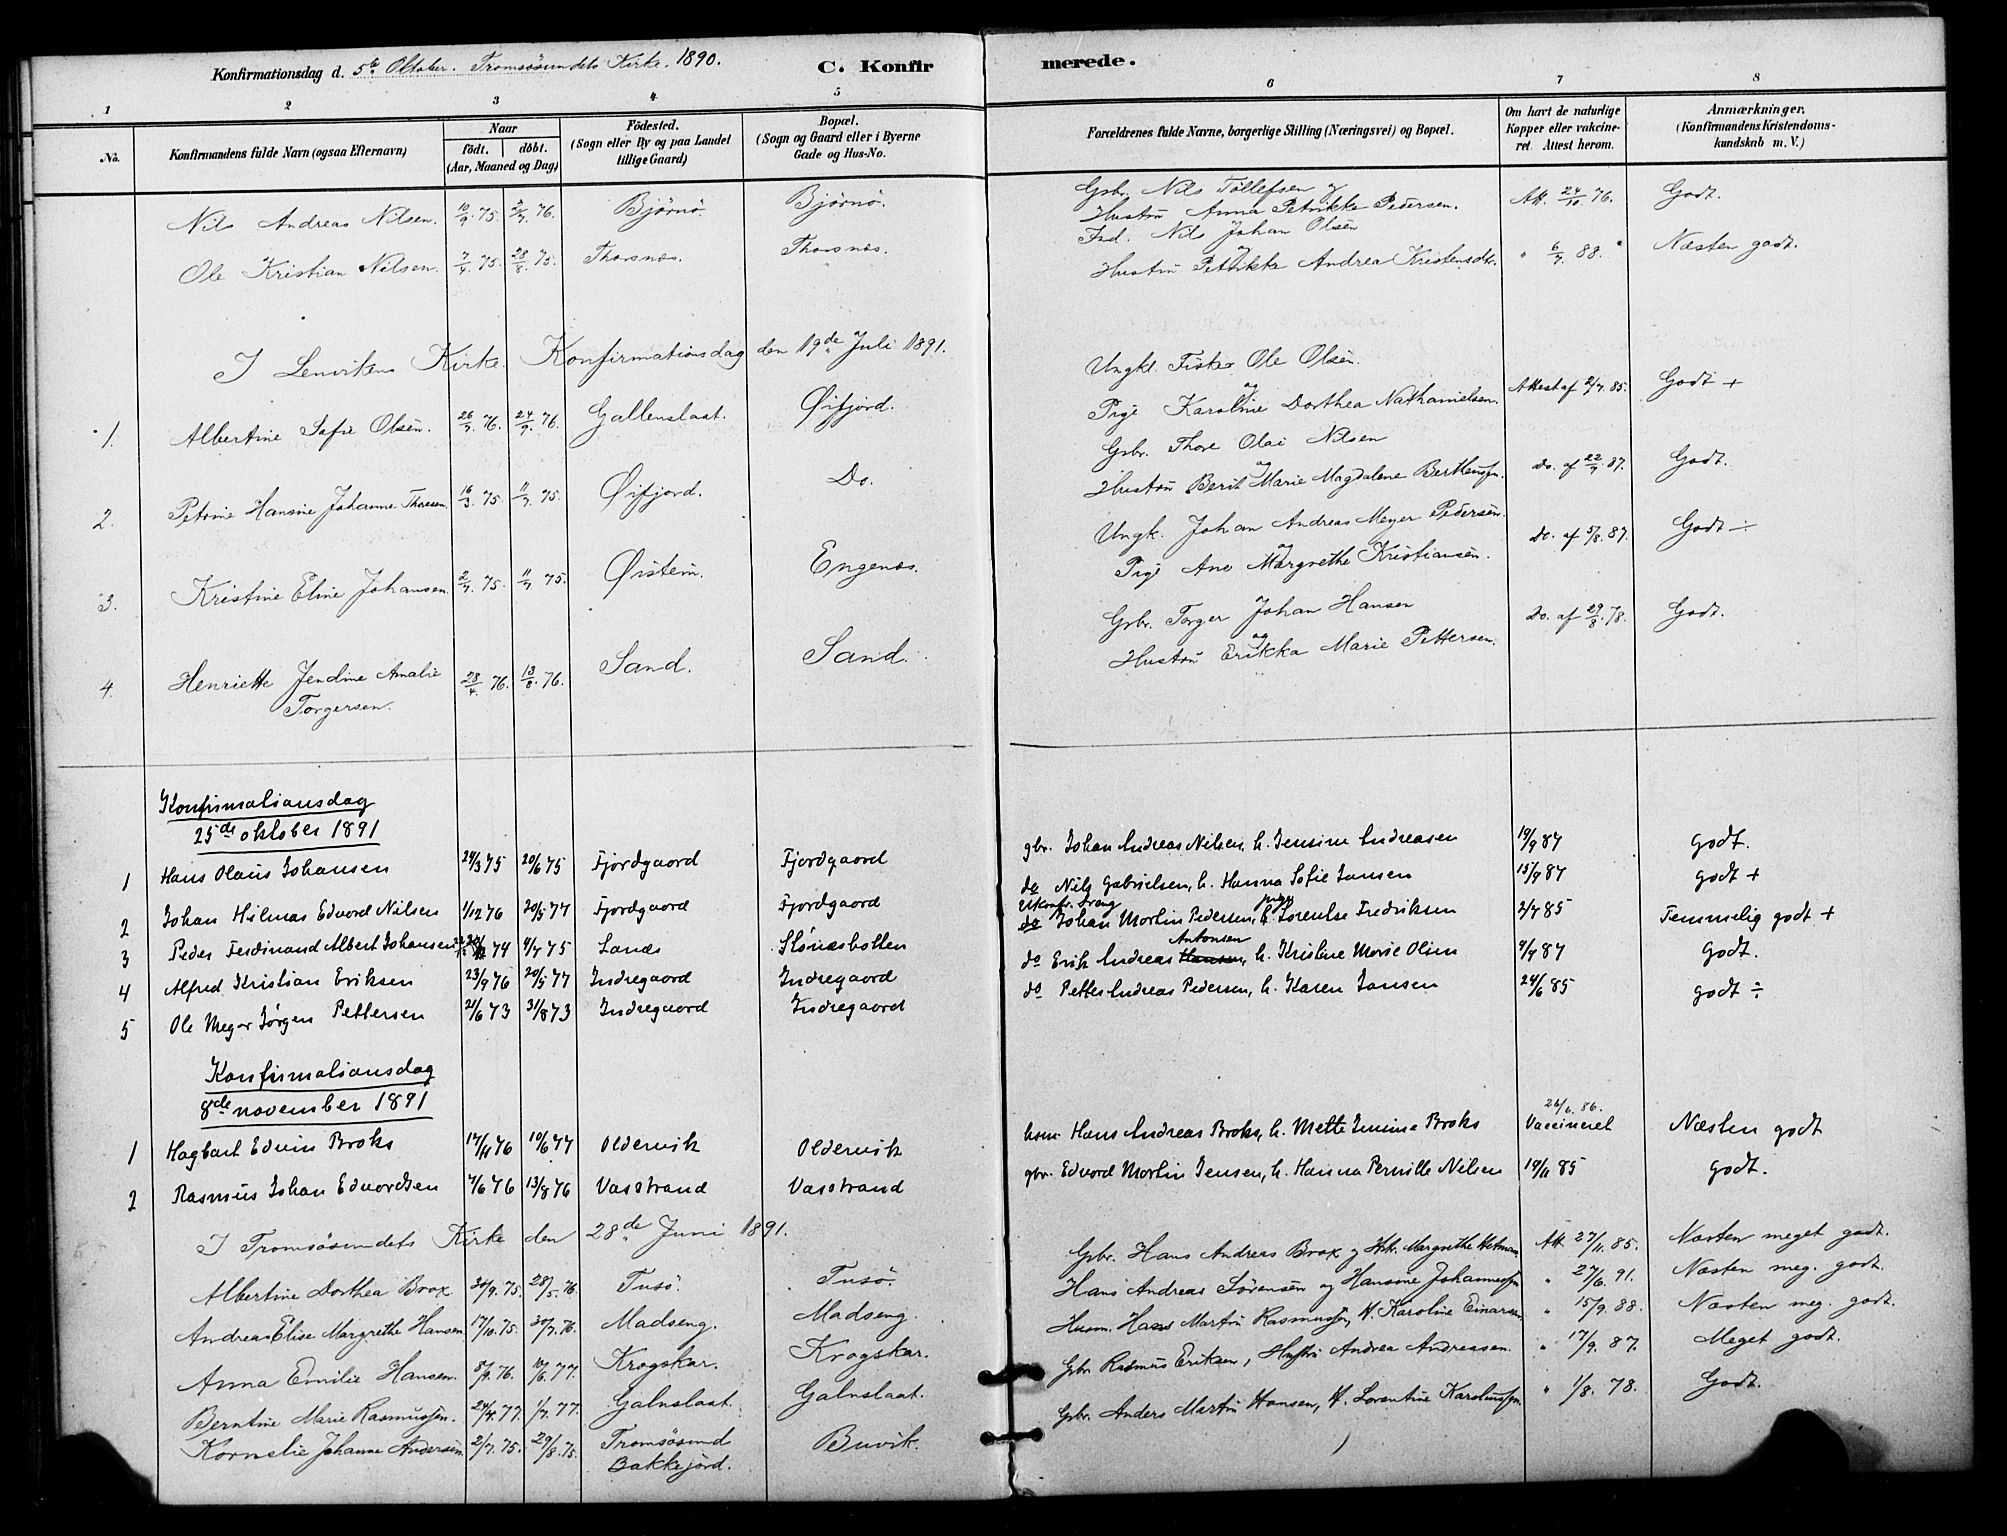 Konfirmationsdag d. 5te Oktober. Tromsøsundets Kirke. 1890. C. Konfirmerede.
1 2 3 4 5 6 7 8
No. Konfirmandens fulde Navn (ogsaa Efternavn) Naar født. døbt. (Aar, Maaned og Dag) Fødested. (Sogn eller By og paa Landet tillige Gaard) Bopæl. (Sogn og Gaard eller i Byerne Gade og Hus-No. Forældrenes fulde Navne, borgerlige Stilling (Næringsvei) og Bopæl. Om havt de naturlige Kopper eller vakcineret. Attest herom. Anmærkninger. (Konfirmandens Kristendomskundskab m. V.)
Nils Andreas Nilsen. 10/9. 75. 2/7. 76. Bjørnø. Bjørnø. Gbr. Nils Tollefsen og Hustru Anna Petrikke Pedersen. Att. 24/10 76. Godt.
Ole Kristian Nilsen. 7/4. 75. 28/8. 75. Thorsnæs. Thorsnæs. Ind. Nils Johan Olsen og Hustru Petrikke Andrea Kristensdtr. " 6/7. 88. Næsten godt.
I Lenvikens Kirke. Konfirmationsdag den 19de Juli 1891.
1. Albertine Sofie Olsen. 26/7. 76. 24/9. 76. Gallenslaat. Øifjord. Ungkl. Fisker Ole Olsen og Pige Karoline Dorthea Nathanielsen. Attest af 2/7. 85. Godt +
2. Petrine Hansine Johanna Thoresen. 16/3. 75. 11/7. 75. Øifjord. Do. Gbr. Thore Olai Nilsen og Hustru Berit Marie Magdalene Bertheussen. Do. af 22/7. 87. Godt.
3. Kristine Eline Johansen. 2/7. 75. 11/7. 75. Øistein. Engenæs. Ungk. Johan Andreas Meyer Pedersen og Pige Ane Margrethe Kristiansen. Do. af 5/8. 87. Godt ÷
4. Henriette Jendine Amalie Torgersen. 28/4. 76. 13/8. 76. Sand. Sand. Gbr. Torger Johan Hansen og Hustru Erikka Marie Pettersen. Do. af 29/8. 78. Godt.
Konfirmationsdag
25de oktober 1891
1 Hans Olaus Johansen 29/3 75 20/6 75 Fjordgaard Fjordgaard gbr. Johan Andreas Nilsen, h. Jensine Andreasen 19/9 87 godt.
2 Johan Hilmar Edvard Nilsen 1/12 76 20/5 77 Fjordgaard Fjordgaard do Nils Gabrielsen, h. Hanna Sofie Jansen 15/9 87 godt +
3 Peder Ferdinand Albert Johansen 74 4/7 75 Sanæs Slønesbotten Johan Martin Pedersen, pige Lorentse Fredriksen 2/7 85 Temmelig godt +
4 Alfred Kristian Eriksen 23/9 76 20/5 77 Indregaard Indregaard do Erik Andreas Hansen Antonsen, h. Kristine Marie Olsen 9/9 87 godt.
5 Ole Meyer Jørgen Pettersen 21/6 73 31/8 73 Indregaard Indregaard do Petter Andreas Pedersen, h. Karen Jansen 24/6 85 godt ÷
Konfirmationsdag
8de november 1891
1 Hagbart Edvin Broks 17/11 76 10/6 77 Oldervik Oldervik husm. Hans Andreas Broks, h. Mette Jensine Broks 26/6. 86. Vaccineret Næsten godt
2 Rasmus Johan Edvardsen 4/6 76 13/8 76 Vasstrand Vasstrand gbr. Edvard Martin Jensen, h. Hanna Pernille Nilsen 19/11 85 godt.
I Tromsøsundets Kirke den 28de Juni 1891.
Albertine Dorthea Brox 30/9. 75. 28/5. 76. Tusø. Tusø. Gbr. Hans Andreas Brox og Margrethe Att. 27/11. 85. Næsten meget godt.
Andrea Elise Margrethe Hansen 17/10. 75. 30/7. 76. Madseng. Madseng. Hans Andreas Sørensen og Hansine Johannessen " 27/6. 91. Næsten meg. godt.
Anna Emilie Hansen. 8/9. 76. 10/6. 77. Krogskar. Krogskar. Husm. Hans Martin Rasmussen, H. Karoline Einarsen " 15/9. 88. Næsten meg. godt.
Berntine Marie Rasmussen. 24/4. 77. 1/7. 77. Galnslaat. Galnslaat. Gbr. Rasmus Eriksen, Hustru Andrea Andreassen. " 17/9. 87. Meget godt.
Kornelie Johanne Andersen 2/7. 75. 29/8. 75. Tromsøsund Bakkejord. Buvik. Gbr. Anders Martin Hansen, H. Lorentine Karolinussen. " 1/8. 78. Godt.